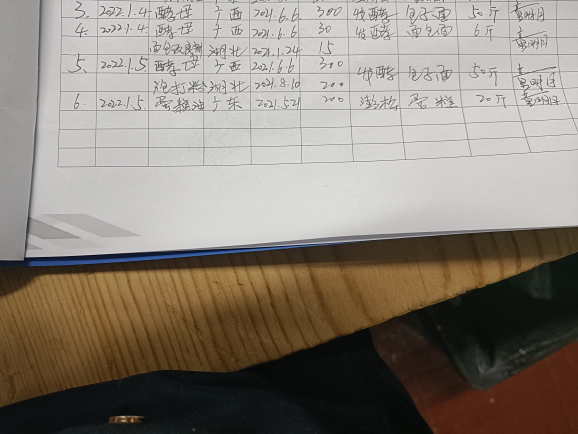 3. 2022.1.4 酵母 广西 2021.6.6 300 发酵 包子面 50斤
4. 2022.1.4 酵母 广西 2021.6.6 30 发酵 面包面 6斤
面包改良剂 湖北 2021.1.24 15
5. 2022.1.5 酵母 广西 2021.6.6 300 发酵 包子面 50斤
泡打粉 湖北 2021.8.10 200
6. 2022.1.5 蛋糕油 广东 2021.5.21 200 蓬松 蛋糕 20斤